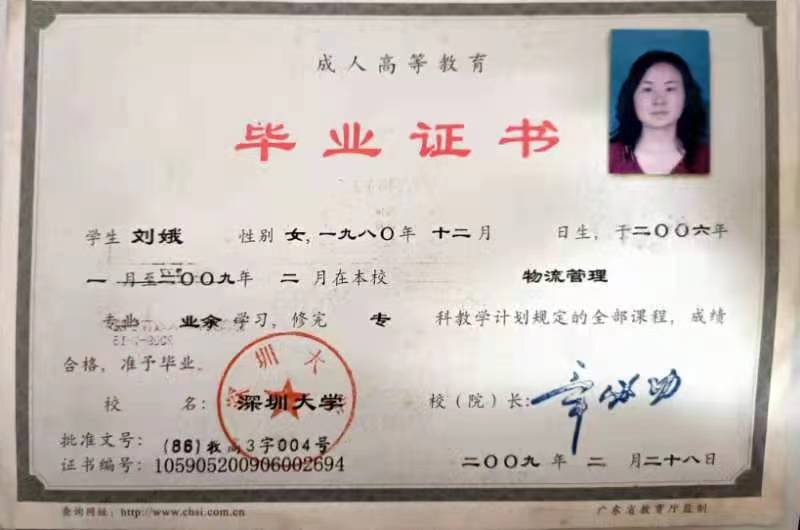 成人高等教育
毕业证书
学生 刘娥 性别 女,一九八〇年 十二月 日生，于二〇〇六年
一 月至二〇〇九年 二 月在本校 物流管理
专业 业余 学习，修完 专 科教学计划规定的全部课程，成绩
合格，准予毕业。
深圳大
校 名：深圳大学 校（院）长：章必功
批准文号：(86)教高3字004号
证书编号：105905200906002694 二〇〇九 年 二 月二十八日
查询网址：http://www.chsi.com.cn 广东省教育厅监制